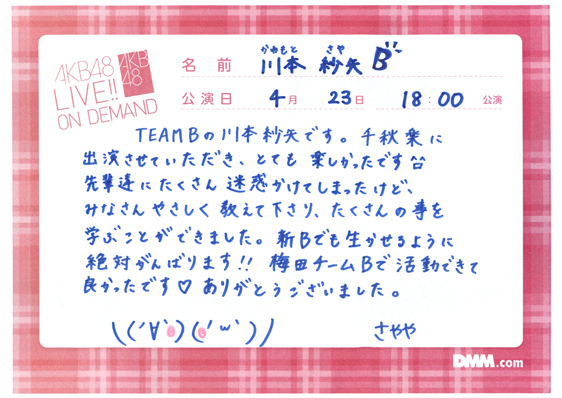 AKB48
LIVE!!
ON DEMAND
AKB
48
かわもと さや
名前 川本 紗矢 B
公演日 4月 23日 18:00 公演
TEAM Bの川本紗矢です。千秋楽に
出演させていただき、とても 楽しかったです
先輩達にたくさん 迷惑かけてしまったけど、
みなさん やさしく 教えて下さり、たくさんの事を
学ぶことができました。新Bでも生かせるように
絶対がんばります!! 梅田チームBで活動できて
良かったです♡ ありがとうございました。
\(('∀`)(‘ω`)/
さやや
DMM.com